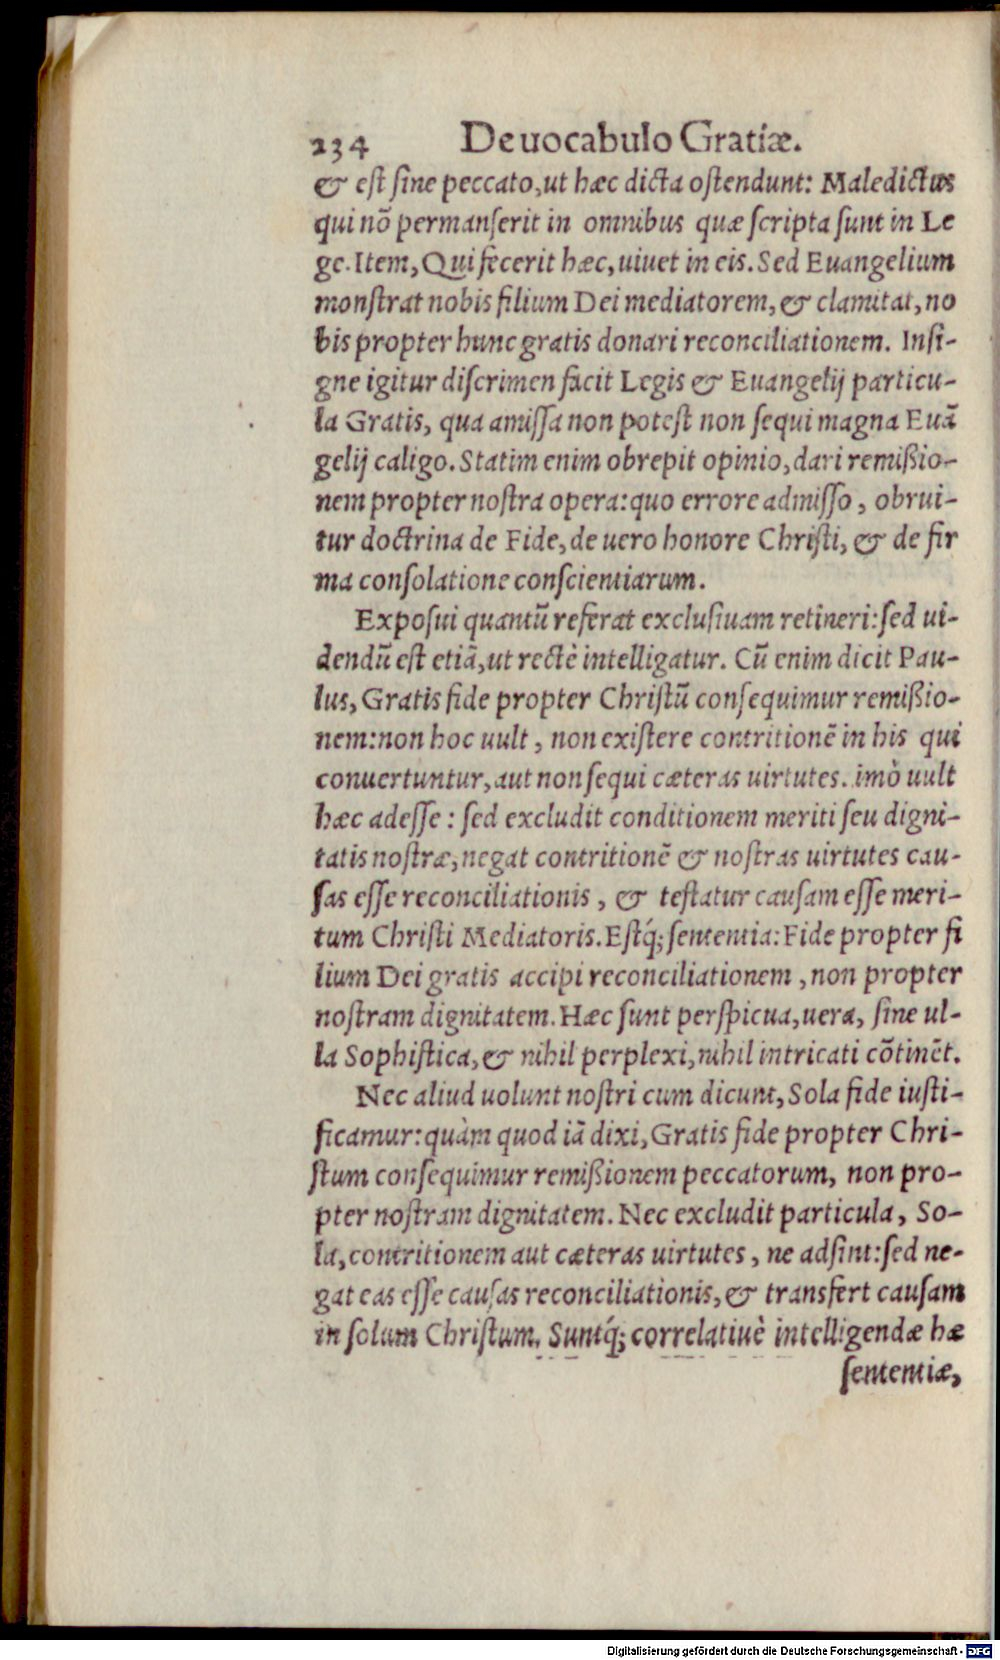 234 De uocabulo Gratiæ.
& est sine peccato, ut hæc dicta ostendunt: Maledictus
qui nõ permanserit in omnibus quæ scripta sunt in Le
ge. Item, Qui fecerit hæc, uiuet in eis. Sed Euangelium
monstrat nobis filium Dei mediatorem, & clamitat, no
bis propter hunc gratis donari reconciliationem. Insi-
gne igitur discrimen facit Legis & Euangelij particu-
la Gratis, qua amissa non potest non sequi magna Euã
gelij caligo. Statim enim obrepit opinio, dari remißio-
nem propter nostra opera: quo errore admisso, obrui-
tur doctrina de Fide, de uero honore Christi, & de fir
ma consolatione conscientiarum.
Exposui quantũ referat exclusiuam retineri: sed ui-
dendũ est etiã, ut rectè intelligatur. Cũ enim dicit Pau-
lus, Gratis fide propter Christũ consequimur remißio-
nem: non hoc uult, non existere contritionẽ in his qui
conuertuntur, aut non sequi cæteras uirtutes. imò uult
hæc adesse: sed excludit conditionem meriti seu digni-
tatis nostræ, negat contritionẽ & nostras uirtutes cau-
sas esse reconciliationis, & testatur causam esse meri-
tum Christi Mediatoris. Estq́; sententia: Fide propter fi
lium Dei gratis accipi reconciliationem, non propter
nostram dignitatem. Hæc sunt perspicua, uera, sine ul-
la Sophistica, & nihil perplexi, nihil intricati cõtinẽt.
Nec aliud uolunt nostri cum dicunt, Sola fide iusti-
ficamur: quàm quod iã dixi, Gratis fide propter Chri-
stum consequimur remißionem peccatorum, non pro-
pter nostram dignitatem. Nec excludit particula, So-
la, contritionem aut cæteras uirtutes, ne adsint: sed ne-
gat eas esse causas reconciliationis, & transfert causam
in solum Christum. Suntq́; correlatiuè intelligendæ hæ
sententiæ,
Digitalisierung gefördert durch die Deutsche Forschungsgemeinschaft - DFG